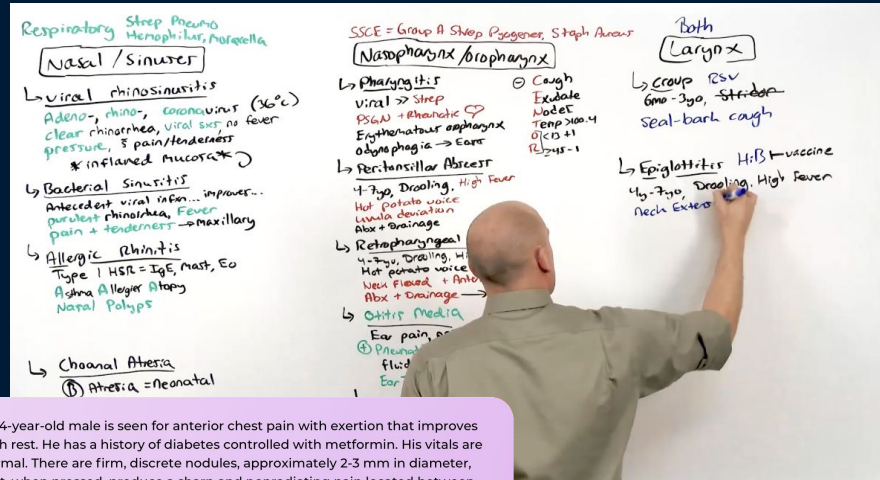 Respiratory Strep Pneumo
Hemophilus, Moraxella
Nasal/Sinuses
Viral rhinosinusitis
Adeno-, rhino-, coronavirus (36°C)
clear rhinorrhea, viral sxs, no fever
pressure, s̄ pain/tenderness
*inflamed mucosa*
Bacterial Sinusitis
Antecedent viral infxn... improves...
purulent rhinorrhea, Fever
pain + tenderness → maxillary
Allergic Rhinitis
Type 1 HSR = IgE, Mast, Eo
Asthma Allergies Atopy
Nasal Polyps
Choanal Atresia
(B) Atresia = Neonatal
SSCE = Group A Strep Pyogenes, Staph Aureus
Nasopharynx/oropharynx
Pharyngitis
viral >> Strep
PSGN + Rheumatic ♡
Erythematous oropharynx
Odynophagia → Ears
⊖ Cough
Exudate
Nodes
Temp >100.4
O <15 +1
R >45 -1
Peritonsillar Abscess
4-7yo, Drooling, High Fever
Hot potato voice
uvula deviation
Abx + Drainage
Retropharyngeal
4-7yo, Drooling, Hi
Hot potato voice
Neck Flexed + Ante
Abx + Drainage →
Otitis Media
Ear pain,
⊕ Pneuma
fluid
Ear T
Both
Larynx
Croup RSV
6mo-3yo, Stridor
Seal-bark cough
Epiglottitis HiB vaccine
4y-7yo, Drooling, High Fever
Neck Extens
4-year-old male is seen for anterior chest pain with exertion that improves
h rest. He has a history of diabetes controlled with metformin. His vitals are
mal. There are firm, discrete nodules, approximately 2-3 mm in diameter,
t, when pressed, produce a sharp and nonradiating pain located between